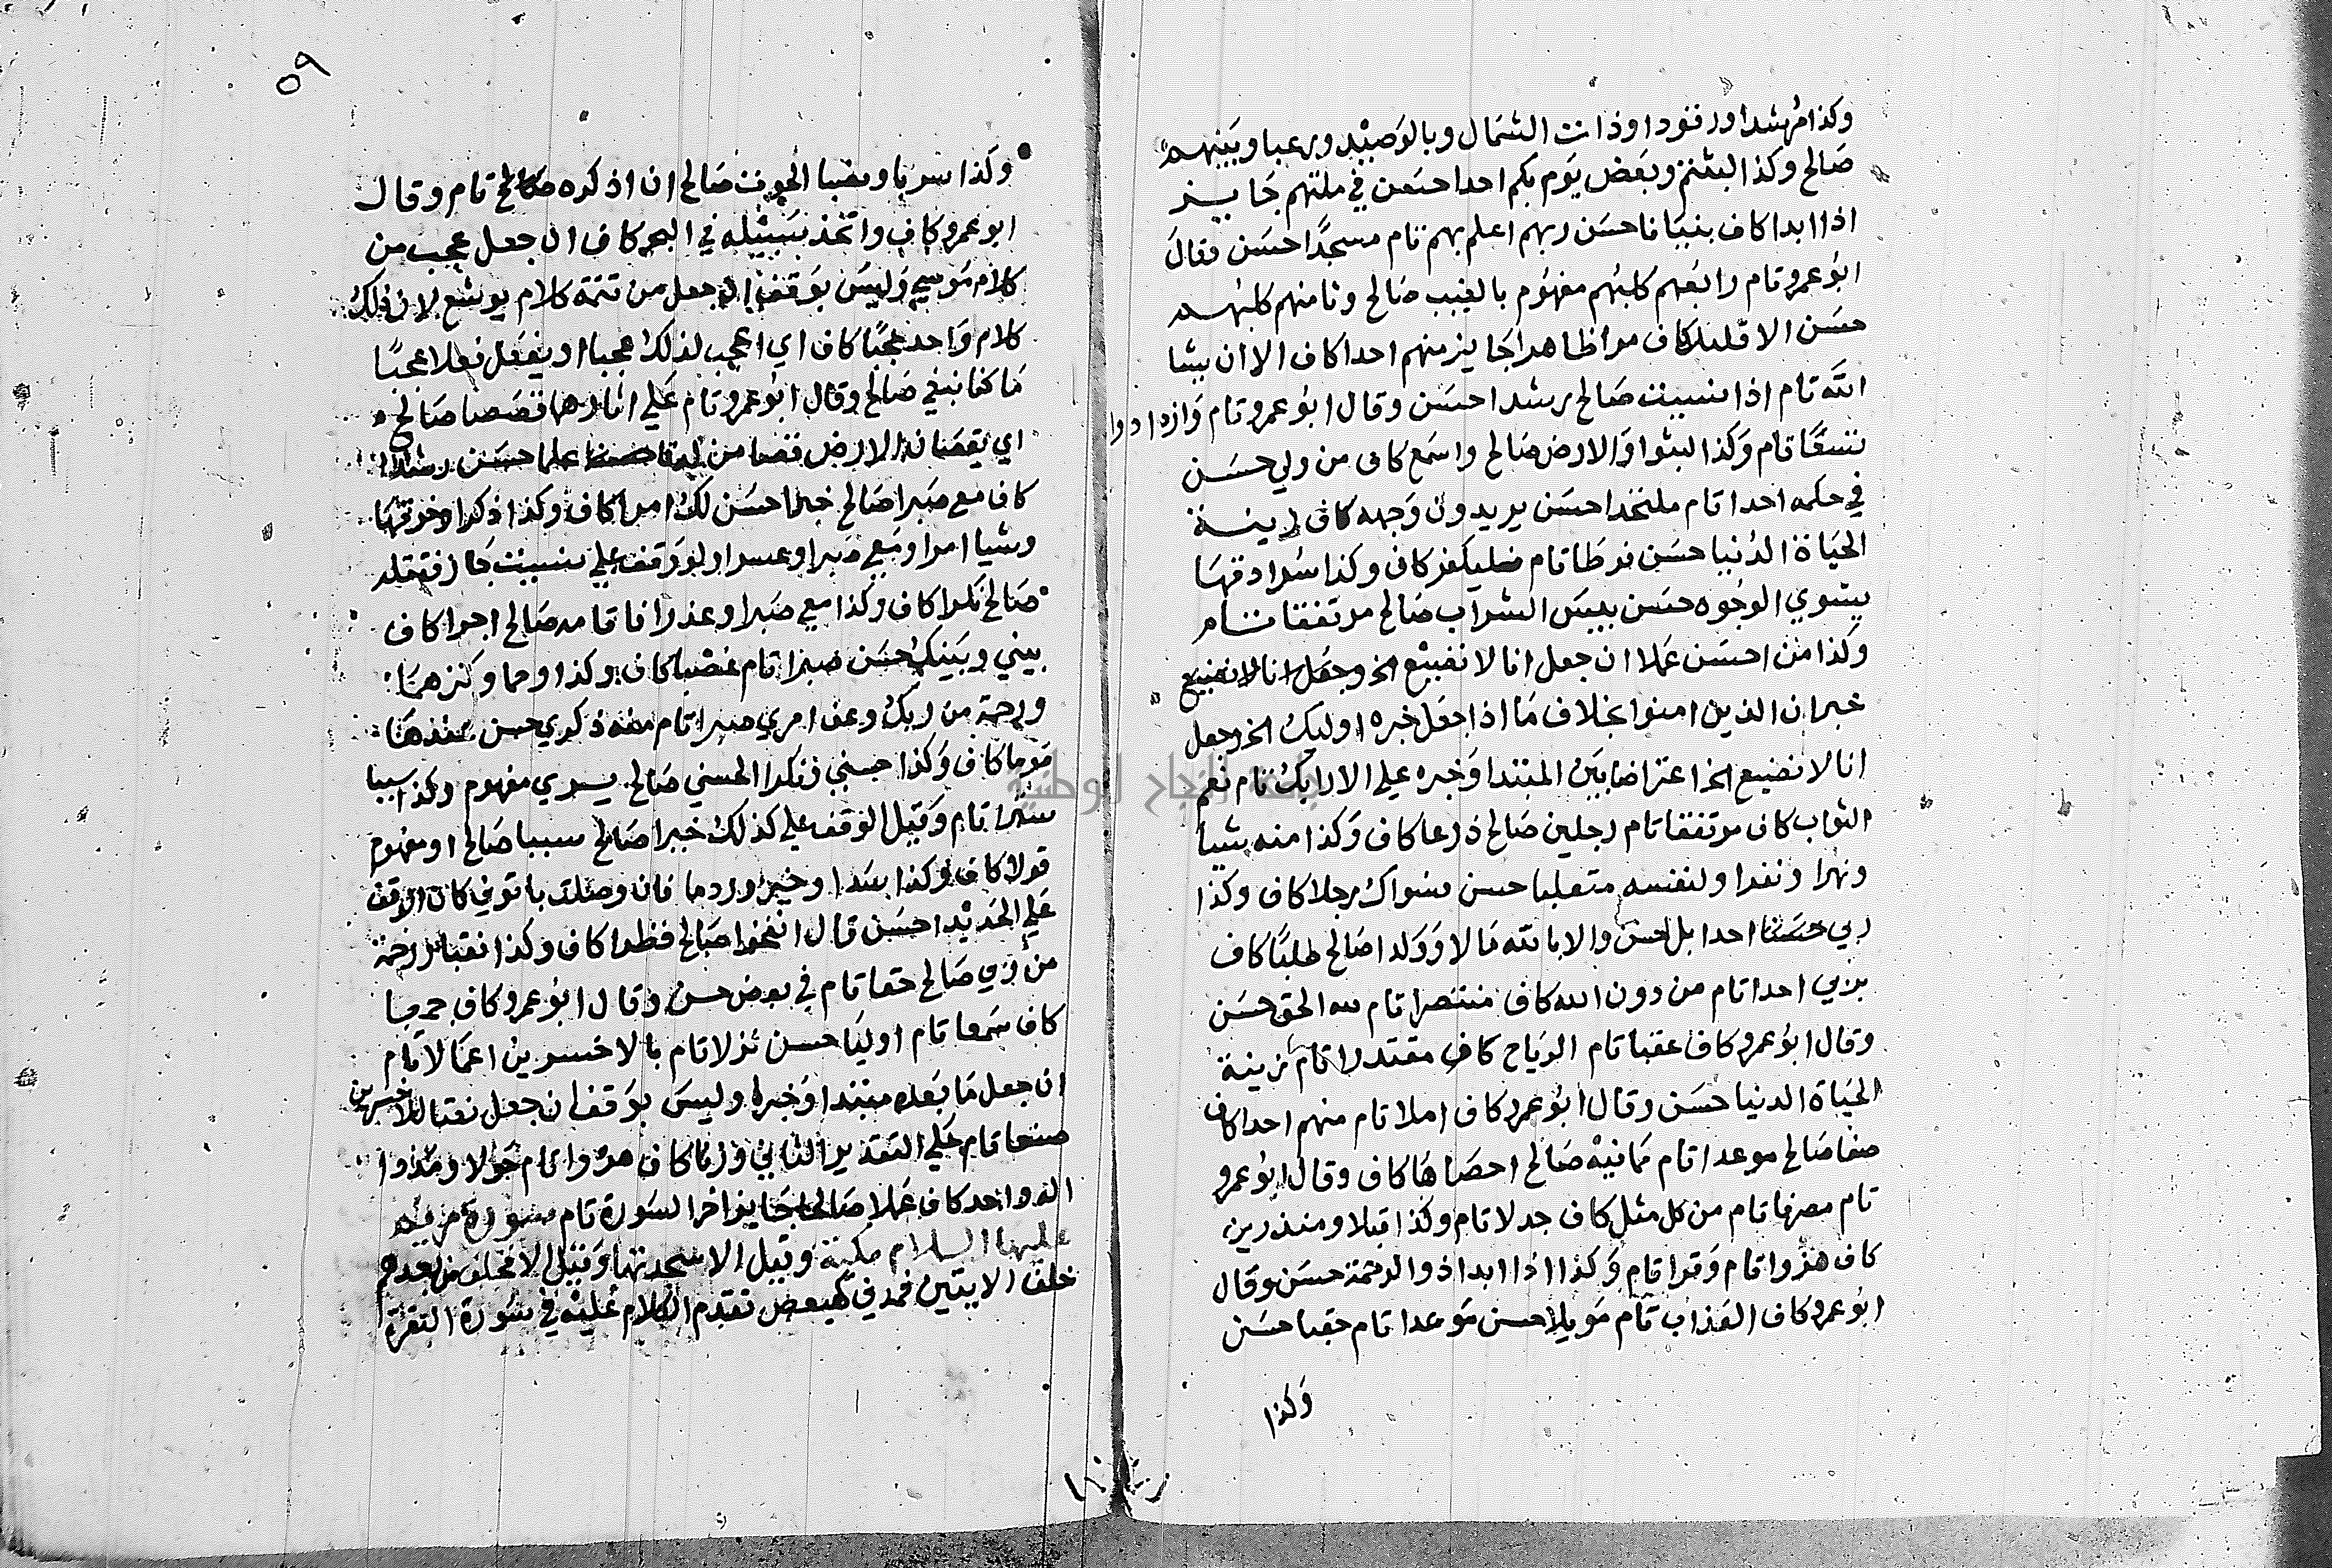 وكذا مرشدا ورقود اوذات الشمال وبالوصيد ورعبا وبينهم
صالح وكذا لبثتم وبعض يوم بكم احدا حسن في ملتهم جايز
اذا ابدا كاف بنيانا حسن ربهم اعلم بهم تام مسجدا حسن وقال
ابوعمرو تام رابعهم كلبهم مفهوم بالغيب صالح وثامنهم كلبهم
حسن الا قليل كاف مرا ظاهرا جايز منهم احدا كاف الا ان يشا
الله تام اذا نسيت صالح رشدا حسن وقال ابوعمرو تام وازدادوا
تسعا تام وكذا لبثوا والارض صالح واسمع كاف من ولي حسن
في حكمه احدا تام ملتحدا حسن يريدون وجهه كاف زينة
الحياة الدنيا حسن فرطا تام فليكفر كاف وكذا سرادقها
يشوي الوجوه حسن بيس الشراب صالح مرتفقا تام
وكذا من احسن عملا ان جعل انا لا نضيع الخ وجعل انا لا نضيع
خبر ان الذين امنوا بخلاف ما اذا جعل خبره اوليك الخ وجعل
انا لا نضيع الخ اعتراضا بين المبتدا وخبره علي الارايك تام نعم
الثواب كاف مرتفقا تام رجلين صالح زرعا كاف وكذا منه شيا
ونهرا ونفرا ولنفسه متعلبا حسن سواك رجلا كاف وكذا
ربي حسن احدا بل حسن والا بالله مالا وولدا صالح طلبا كاف
بربي احدا تام من دون الله كاف منتصرا تام لله الحق حسن
وقال ابوعمرو كاف عقبا تام الرياح كاف مقتدرا تام زينة
الحياة الدنيا حسن وقال ابوعمرو كاف املا تام منهم احدا كاف
صفا صالح موعدا تام مما فيه صالح احصاها كاف وقال ابوعمرو
تام مصرفا تام من كل مثل كاف جدلا تام وكذا قبلا ومنذرين
كاف هزوا تام وقرا تام وكذا اذا ابدا ذو الرحمة حسن وقال
ابوعمرو كاف العذاب تام مويلا حسن موعدا تام حقبا حسن
وكذا
٥٩
وكذا سربا ونصبا الحوت صالح ان اذكره صالح تام وقال
ابوعمرو كاف واتخذ سبيله في البحر كاف ان جعل عجب من
كلام موسي وليس بوقف ان جعل من تتمة كلام يوشع لان ذلك
كلام واحد عجبا كاف اي اعجب لذلك عجبا او يفعل فعلا عجبا
ما كنا نبغي صالح وقال ابوعمرو تام علي اثارهما قصصا صالح
اي يقصان الارض قصا من لدنا علما حسن رشدا
كاف مع صبرا صالح خبرا حسن لك امرا كاف وكذا ذكرا وخرقتها
وشيا امرا ومعي صبرا وعسرا ولو وقف علي نسيت جاز فقتله
صالح نكرا كاف وكذا معي صبرا وعذرا فاقامه صالح اجرا كاف
بيني وبينك حسن صبرا تام غصبا كاف وكذا رحما وكنزهما
ورحمة من ربك وعن امري صبرا تام منه ذكري حسن عندها
قوما كاف وكذا حسني ونكرا الحسني صالح يسري مفهوم وكذا سببا
سترا تام وقيل الوقف علي كذلك خبرا صالح سببا صالح او مفهوم
قولا كاف وكذا سدا وخير وردما فان وصلت باتوني كان الوقف
علي الحديد احسن قال انفخوا صالح قطرا كاف وكذا نقبا رحمة
من ربي صالح حقا تام في بعض حسن وقال ابوعمرو كاف جمعا
كاف سمعا تام اوليا حسن نزلا تام بالاخسرين اعمالا تام
ان جعل ما بعده مبتدا وخبرا وليس بوقف ان جعل نعتا للاخسرين
صنعا تام علي التقدير الثاني وزنا كاف هزوا تام حولا ومددا
اله واحد كاف عملا صالحا جايز اخر السورة تام سورة مريم
عليها السلام مكية وقيل الا سجدتها وقيل الا فخلف من بعدهم
خلف الايتين فمدني كهيعص تقدم الكلام عليه في سورة البقرة
جامعة النجاح الوطنية